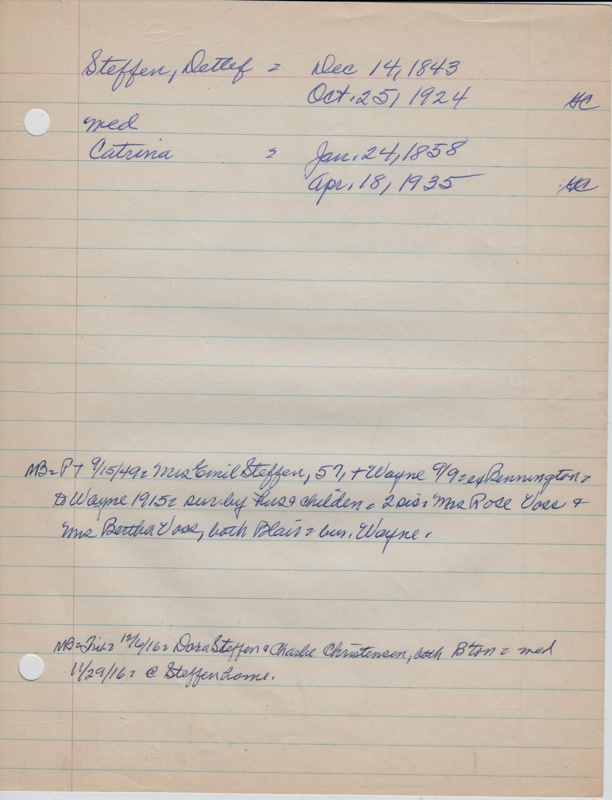 Steffen, Detlef = Dec 14, 1843
Oct. 25, 1924 HC
med
Catrina = Jan. 24, 1858
Apr. 18, 1935 HC
NB = PT 9/15/49 = Mrs Emil Steffen, 57, + Wayne 9/9 = ex Bennington =
to Wayne 1915 = sur by hus & children = 2 sis = Mrs Rose Voss +
Mrs Bertha Voss, both Blair = bur. Wayne.
NB = 12/6/16 = Dora Steffen & Charlie Christensen, both B'ton = med
11/29/16 = @ Steffen home.